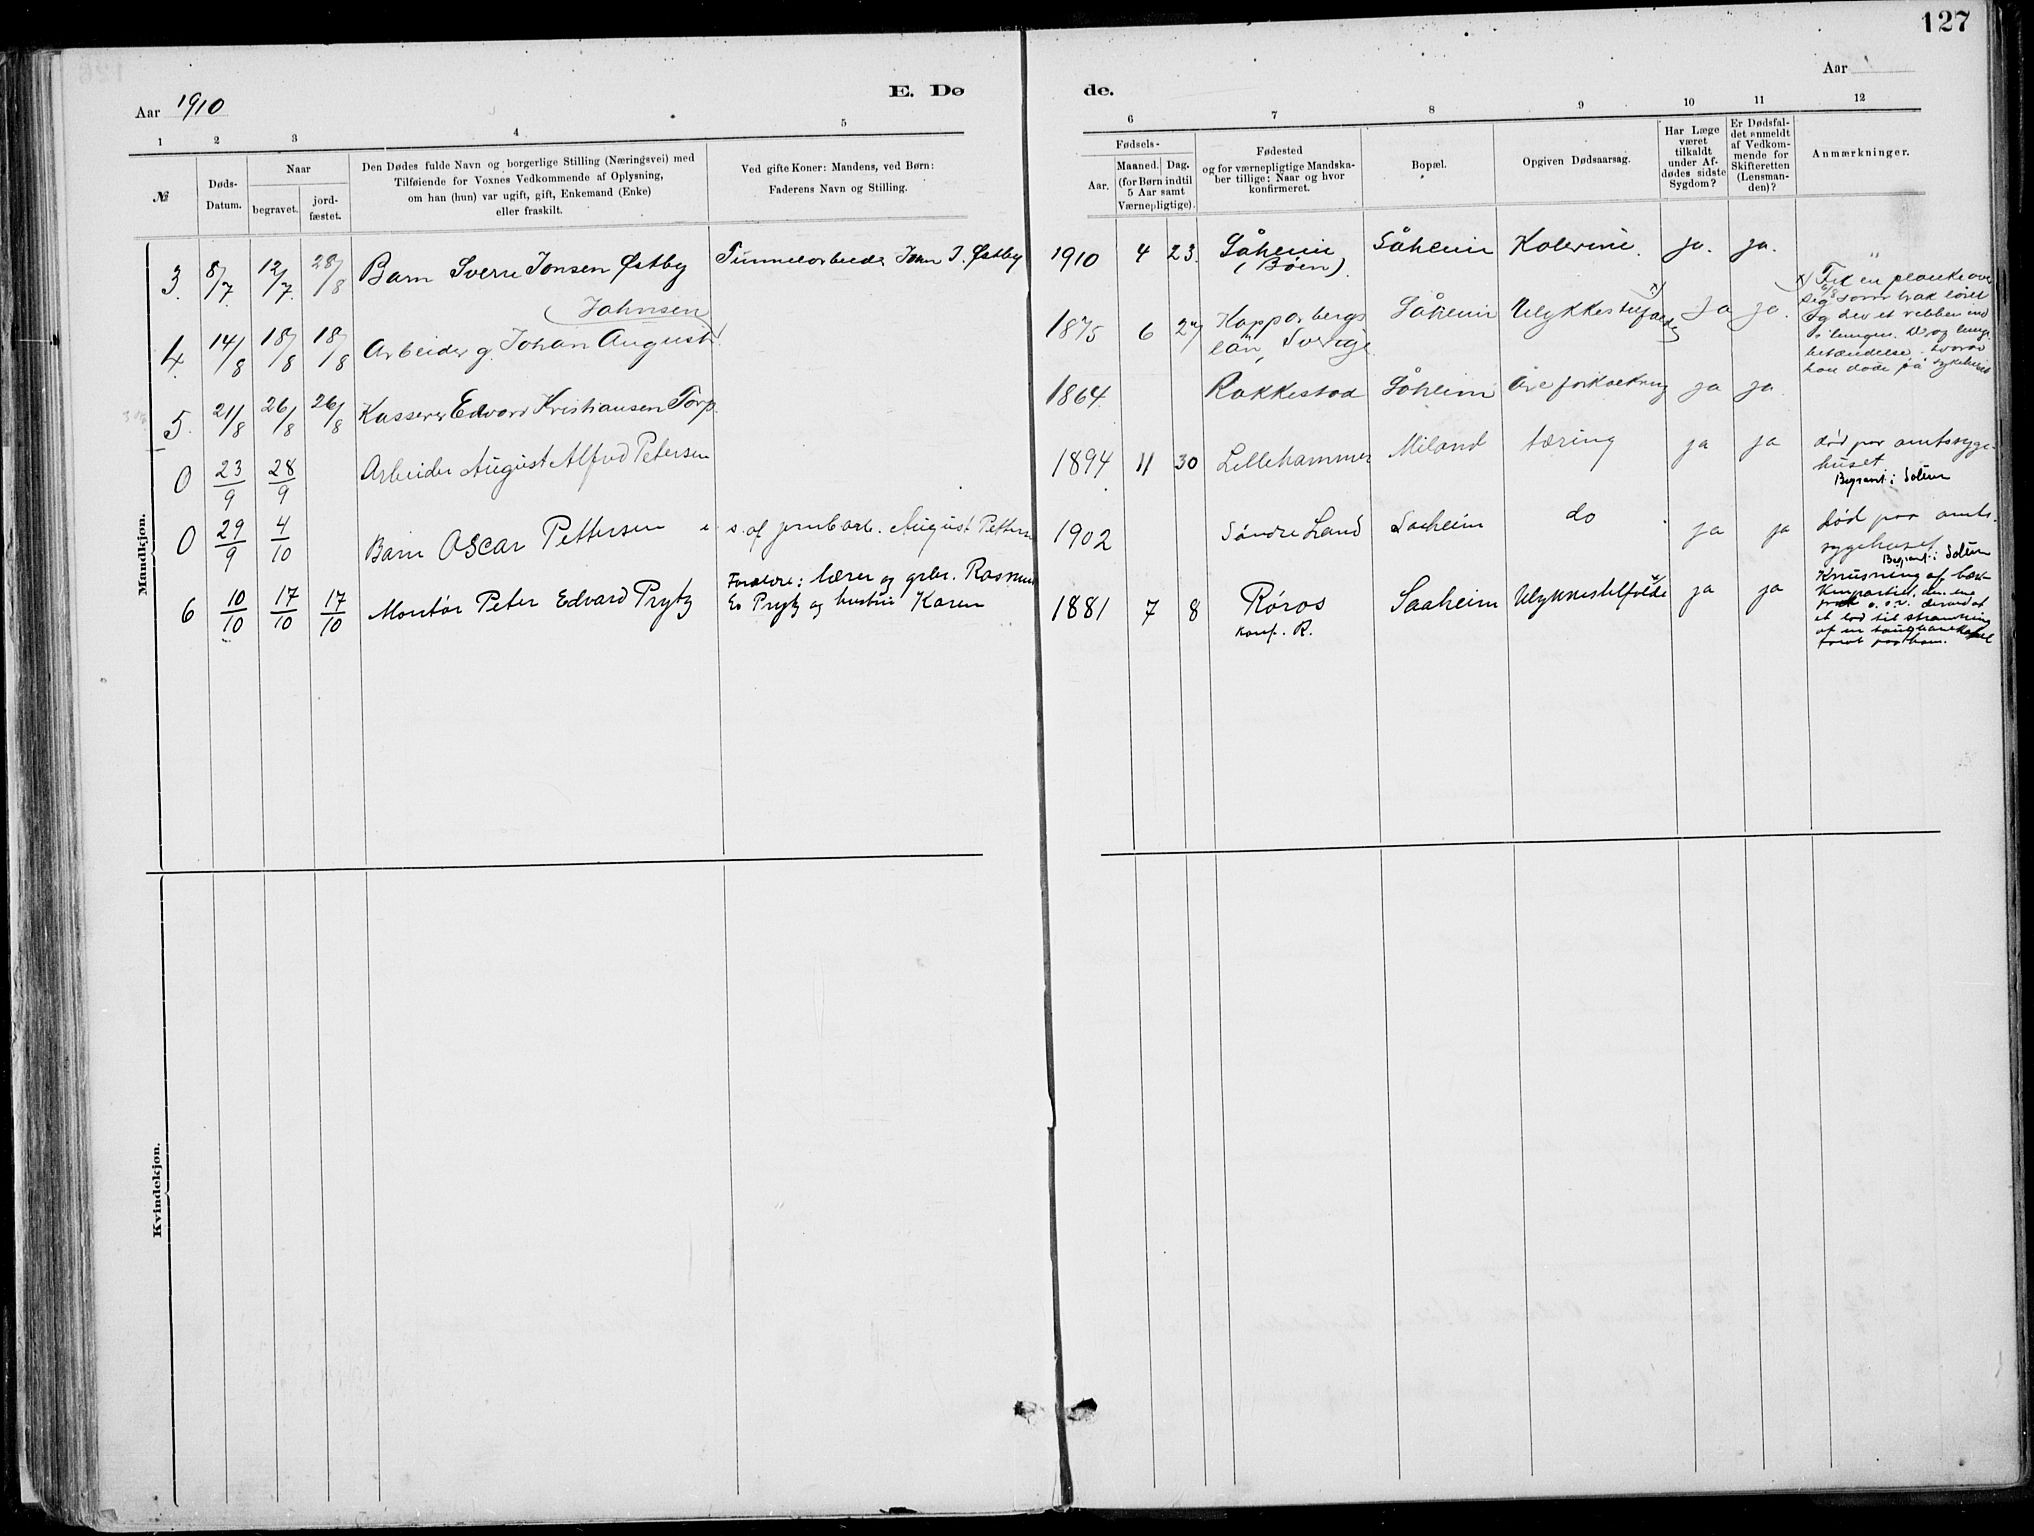 127
Aar 1910
E. Dø
de.
Aar
1 2 3 4 5
6 7 8 9 10 11 12
№
Døds-
Datum.
Naar
begravet.
jord-
fæstet.
Den Dødes fulde Navn og borgerlige Stilling (Næringsvei) med
Tilføiende for Voxnes Vedkommende af Oplysning,
om han (hun) var ugift, gift, Enkemand (Enke)
eller fraskilt.
Ved gifte Koner: Mandens, ved Børn:
Faderens Navn og Stilling.
Fødsels-
Aar.
Maaned. Dag.
(for Børn indtil
5 Aar samt
Værnepligtige).
Fødested
og for værnepligtige Mandska-
ber tillige: Naar og hvor
konfirmeret.
Bopæl.
Opgiven Dødsaarsag.
Har Læge
været
tilkaldt
under Af-
dødes sidste
Sygdom?
Er Dødsfal-
det anmeldt
af Vedkom-
mende for
Skifteretten
(Lensman-
den)?
Anmærkninger.
Mandkjøn.
3. 8/7 12/7. 28/8 Barn Sverre Jonsen Østby Tunnelarbeider John J. Østby 1910 4 23. Såheim Såheim Kolerine. ja. ja. "
(Bøen).
(Johnsen)
4. 14/8 18/8 18/8 Arbeider g. Johan August 1875 6 27 Kopparbergs Såheim Ulykkestilfælde x) ja ja. x) Fik en planke over
län, Sverige
sig som brak löist
og drev et ribben ind
i lungen. D og lunge
betændelse. hvorav
han döde på sykehuset
5. 21/8 26/8 26/8 Kasserer Edvard Kristiansen Torp. 1864 Rakkestad Såheim Åreforkalkning ja ja
0 23/9 28/9 Arbeider August Alfred Petersen 1894 11 30 Lillehammer Miland tæring ja ja død paa amtssyge-
huset
Begravt i
0 29/9 4/10 Barn Oscar Pettersen s. af jernbarb. August Petters 1902 Søndre Land Saaheim do ja ja død paa amts.
sygehuset
Begravt i
6 10/10 17/10 17/10 Montør Peter Edvard Prytz Forældre: lærer og grbr. Rasmus 1881 7 8 Røros Saaheim Ulykkestilfælde x/ ja ja Knusning af bæk-
Ev Prytz og hustru Karen
konf. R.
kenpartiet, den ene
o.s.v. derved at
et lod til stramning
af en
paa ham.
Kvindekjøn.